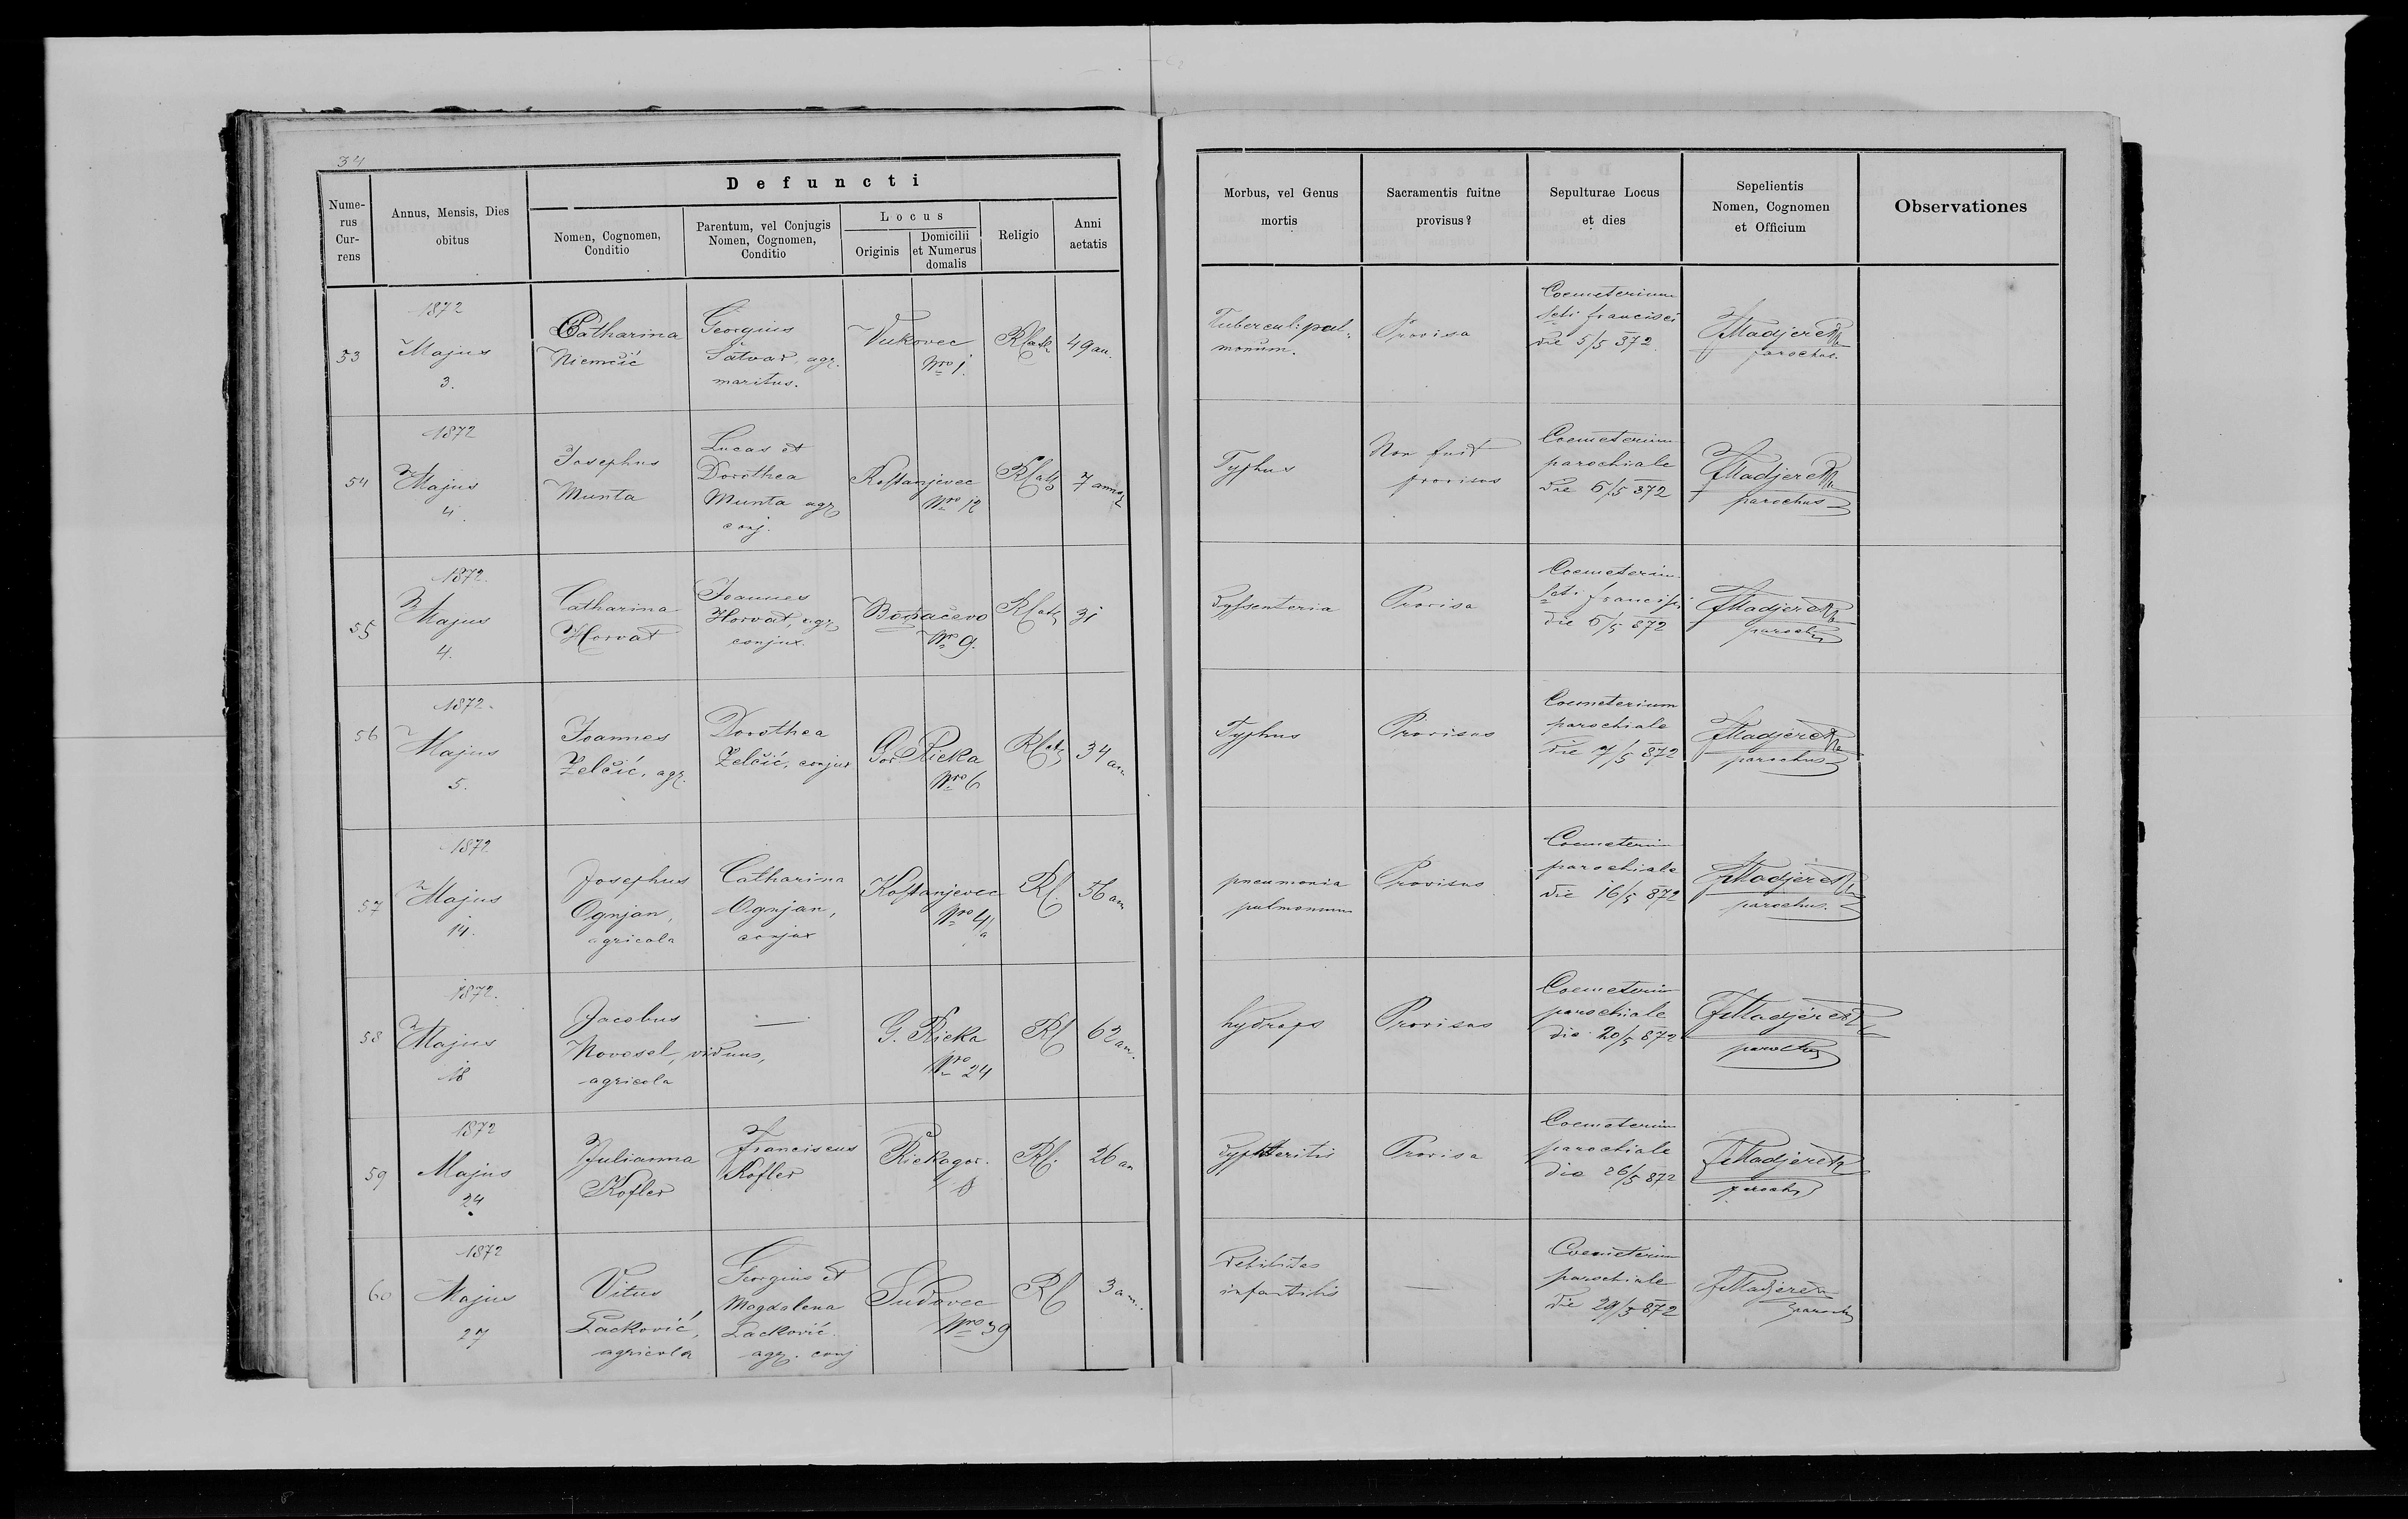 34
Defuncti
Nume-
rus
Cur-
rens
Annus, Mensis, Dies
obitus
Nomen, Cognomen,
Conditio
Parentum, vel Conjugis
Nomen, Cognomen,
Conditio
Locus
Originis
Domicilii
et Numerus
domalis
Religio
Anni
aetatis
Morbus, vel Genus
mortis
Sacramentis fuitne
provisus?
Sepulturae Locus
et dies
Sepelientis
Nomen, Cognomen
et Officium
Observationes
53
1872
Majus
3.
Catharina
Niemčić
Georgius
Šatvar, agr.
maritus.
Vukovec
Nro 1.
RCath
49 an.
Tubercul: pul-
monum.
Provisa
Coemeterium
Scti francisci
die 5/5 872
Madjerek
parochus.
54
1872
Majus
4.
Josephus
Munta
Lucas et
Dorothea
Munta agr
conj.
Kostanjevec
Nro 12
RCath
7 annor
Typhus
Non fuit
provisus
Coemeterium
parochiale
die 6/5 872
Madjerek
parochus
55
1872.
Majus
4.
Catharina
Horvat
Joannes
Horvat, agr
conjux.
Bočačevo
Nro 9.
RCath
31
Dyssenteria
Provisa
Coemeterium
Scti francisci
die 6/5 872
Madjerek
parochus
56
1872.
Majus
5.
Joannes
Želčić, agr.
Dorothea
Želčić, conjux
Gor. Rieka
Nro 6
RCath
34 an
Typhus
Provisus
Coemeterium
parochiale
die 7/5 872
Madjerek
parochus
57
1872
Majus
14.
Josephus
Ognjan,
agricola
Catharina
Ognjan,
conjux
Kostanjevec
Nro 4/a
RC.
56 an
pneumonia
pulmonum
Provisus
Coemeterium
parochiale
die 16/5 872
Madjerek
parochus.
58
1872.
Majus
18
Jacobus
Novosel, viduus,
agricola
—
G. Rieka
Nro 24
RC
62 an.
hydrops
Provisus
Coemeterium
parochiale
die 20/5 872
Madjerek
parochus
59
1872
Majus
24
Julianna
Kofler
Franciscus
Kofler
Riekagor.
8
RC.
26 an
Dyphteritis
Provisa
Coemeterium
parochiale
die 26/5 872
Madjerek
parochus
60
1872
Majus
27
Vitus
Lacković,
agricola
Georgius et
Magdalena
Lacković.
agr. conj
Sudovec
Nro 39
RC
3 an.
Debilitas
infantilis
—
Coemeterium
parochiale
die 29/5 872
Madjerek
parochus